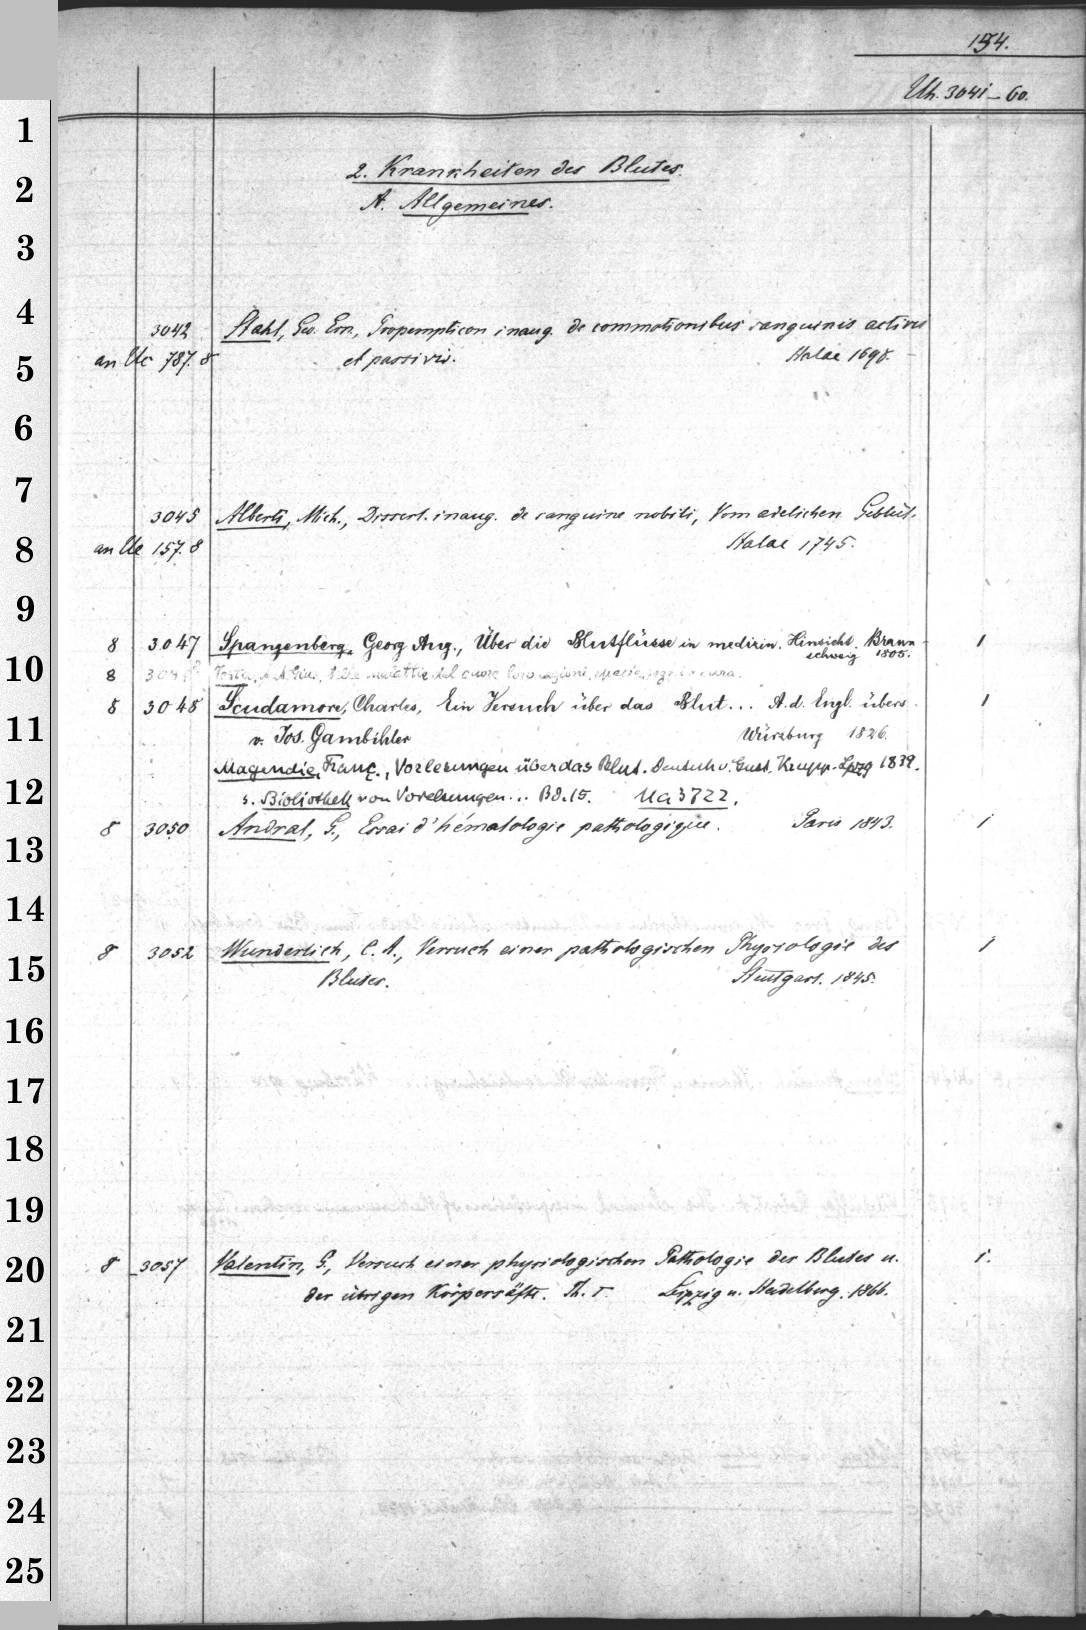 154.
Uh. 3041-60.
1
2. Krankheiten des Blutes.
2
A. Allgemeines.
3
4
3042 Stahl, Geo. Ern., Propempticon inaug. de commotionibus sanguinis activis
an Uc 787. 8 et passivis. Halae 1698.
5
6
7
3045 Alberti, Mich., Dissert. inaug. de sanguine nobili, Vom adelichen Geblüt.
8
an Ue 157. 8 Halae 1745.
9
8 3047 Spangenberg, Georg Aug., Über die Blutflüsse in medizin. Hinsicht. Braun- 1
schweig 1805.
10
8 Testa, A. Gius, Delle malattie del cuore loro cagioni, specie, segni e cura.
8 3048 Scudamore, Charles, Ein Versuch über das Blut... A. d. Engl. übers. 1
11
v. Jos. Gambihler Würzburg 1826.
Magendie, Franç., Vorlesungen über das Blut. Deutsch v. Gust. Krupp. Lpzg 1839.
12
s. Bibliothek von Vorlesungen... Bd. 15. Ua 3722.
8 3050 Andral, G., Essai d'hématologie pathologique. Paris 1843. 1
13
14
8 3052 Wunderlich, C. A., Versuch einer pathologischen Physiologie des 1
15
Blutes. Stuttgart. 1845.
16
17
18
19
8 3057 Valentin, G., Versuch einer physiologischen Pathologie des Blutes u. 1.
20
der übrigen Körpersäfte. Th. I. Leipzig u. Heidelberg. 1866.
21
22
23
24
25